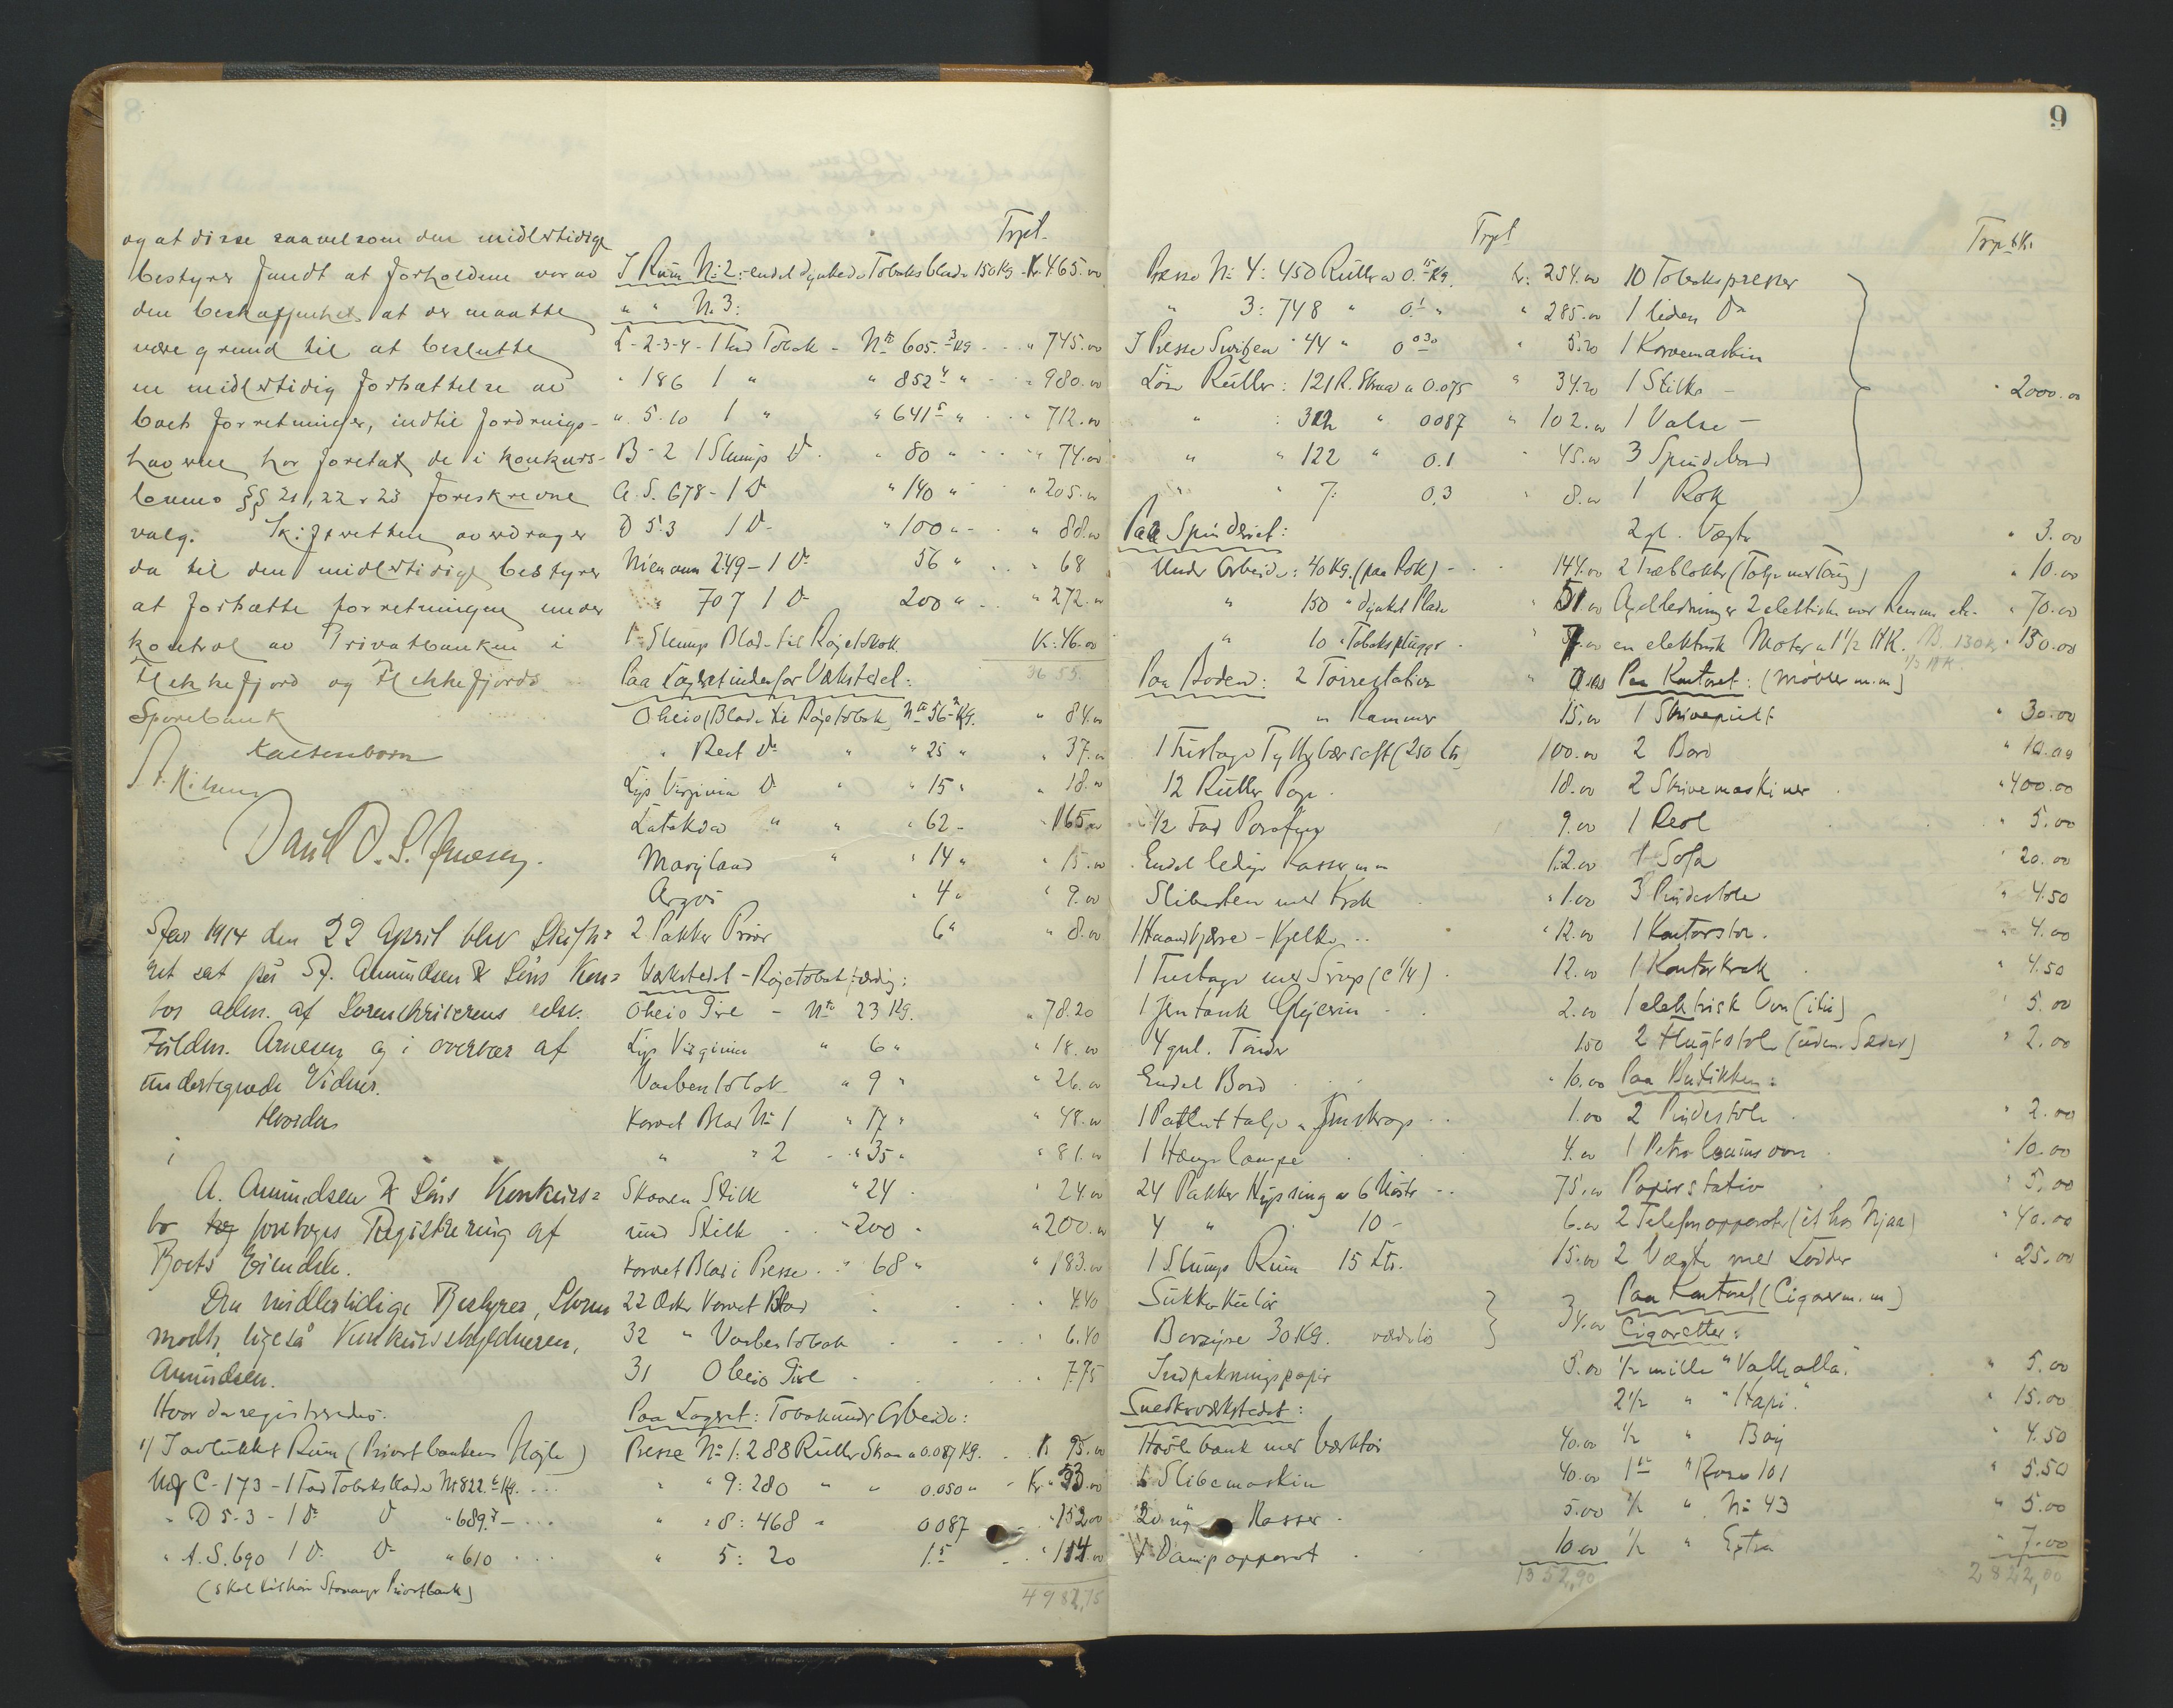 8
og at disse saavelsom den midlertidige
bestyrer fandt at forholdene var av
den beskaffenhet at der maatte
være grund til at beslutte
en midlertidig fortsættelse av
boets forretninger, indtil fordrings-
haverne har foretat de i konkurs-
lovens §§ 21, 22 & 23 foreskrevne
valg. Skifteretten overdrager
da til den midlertidige bestyrer
at fortsætte forretningen under
kontrol av Privatbanken i
Flekkefjord og Flekkefjords
Sparebank
Kaltenborn
Aar 1914 den 22 April blev Skifte=
ret sat paa A. Amundsen & Søns Kon=
bos adm. af Sorenskriverens edsv.
Fuldm. Arnesen og i overvær af
undertegnede Vidner.
Hvorda
i
A. Amundsen & Søns Konkurs=
bo foretoges Registrering af
Boets Eiendele.
Den midlertidige Bestyrer, Storm
mødte, ligesaa Konkursskyldneren,
Amundsen.
Hvor da registreredes:
1/ I avlukket Rum (Privatbankens Nøgle)
C-173 - 1 Fad Tobaksblade Nto 822.
" D 5-3 - 1 Do Do " 689.
" A.S. 690 1 Do Do " 610
(Skal tilhøre Stavanger Privatbank)
Txpt.
I Rum No 2: endel dynkede Tobaksblade 150 Kg. Kr. 465.00
" " No 3:
L-2-3-4 - 1 Fad Tobak - Nto 605.3 Kg - " 745.00
" 186 1 " " 852 " - " 980.00
" 5.10 1 " " 641 " " 712.00
B-2 1 Slump Do " 80 " " 74.00
A.S. 678 - 1 Do " 140 " " 205.00
D 5-3 1 Do " 100 " " 88.00
249 - 1 Do 56 " " 68
" 707 1 Do 200 " " 272.00
1 Slump Blade til Røgetobak Kr. 46.00
3655.
Paa Lageret indenfor Værkstedet:
Oheio (Blade til Røgetobak) Nto 56 Kg. " 84.00
" Rest Do " " 25 " " 37.00
Lys Virginia Do " " 15 " " 18.00
Latakia " " " 62 " 165.00
Maryland " " 14 " " 15.00
Argos " 4 " " 9.00
2 Pakker Prior 6 " " 8.00
Værkstedet - Røgetobak færdig:
Oheio Pire - Nto 23 Kg. " 78.20
Lys Virginia " 6 " " 18.00
Vaabentobak " 9 " " 26.00
Karvet Blad No 1 " 17 " " 48.00
" " 2 " 35 " " 81.00
Skaaren Stilk " 24 " " 24.00
rund Stilk " 200 " " 200.00
Karvet Blad i Presse " 68 " " 183.00
22 Æsker Karvet Blad 4.40
32 " Vaabentobak " 6.40
31 Oheio Pire " 7.75
Paa Lageret: Tobak under Arbeide:
Presse No 1: 288 Ruller Skraa a 0.087 Kg. Kr 95.00
" " 9: 280 " " 0.050 " Kr. " 53.00
" " 8: 468 " 0.087 " 152.00
" 5: 20 1.5 " 114.00
4982,75
9
Txpt
Presse No 4: 450 Ruller a 0.15 Kg. Kr. 254.00
" 3: 748 " 0.1 " " 285.00
I Presse " 44 " 0.030 " 5.20
Løse Ruller: 121 R. Skraa a 0.075 " 34.20
" : 312 " 0.087 " 102.00
" " 122 " 0.1 " 45.00
" " 7: 0.3 " 8.00
Paa Spinderiet:
Under Arbeide: 40 Kg. (paa Rok) - 144.00
" 150 " dynket Blade " 51.00
" 10 " Tobaksplugger
Paa Boden: 2 Tørrestativer
" Kammer 15.00
1 Fustage Tyttebærsaft (250 Ltr) 100.00
12 Ruller Pap. 18.00
1/2 Fad Parafin 9.00
Endel ledige Kasser m.m 12.00
Slibesten med Krak " 1.00
1 Haandkjærre - Kjelke " 12.00
1 Fustage med Sirup (c 1/4) 12.00
1 Jerntank Glyserin 2.00
4 gml. Tønder 1.50
Endel Bord " 10.00
1 Patent talje & Jernskrap 1.00
1 Hængelampe 4.00
24 Pakker Hyssing a 6 Nøster 75.00
4 " " 10 - 6.00
1 Slump Rum 15 Ltr. 15.00
Sukkerkulør
Borsyre 30 Kg. værdiløs 34.00
Indpakningspapir 5.00
Snedkerværkstedet:
Høvlbænk med Værktøi 40.00
1 Slibemaskin 40.00
20 nye Kasser 5.00
1 Dampapparat 10.00
1352,90
Txpt Kr.
10 Tobakspresser
1 liden Do
1 Karvemaskin
1 Stilke -
1 Valse -
3 Spindebord
1 Rok
" 2000.00
2 gl. Vægte " 3.00
2 Træblokker (Talje med Taug) " 10.00
Axelledninger 2 elektriske med Remme etc. " 70.00
en elektrisk Motor a 1 1/2 HK. 130.00
Paa Kontoret: (Møbler m.m)
1 Skrivepult " 30.00
2 Bord " 10.00
2 Skrivemaskiner " 400.00
1 Reol " 5.00
1 Sofa " 20.00
3 Pindestole " 4.50
1 Kontorstol. " 4.00
1 Kontorkrak " 4.50
1 elektrisk Ovn (itu) " 5.00
2 Flugtstole (uden Sæder) " 2.00
Paa Butikken:
2 Pindestole " 2.00
1 Petroleumsovn " 10.00
Papirstativ " 5.00
2 Telefonapparater (et hos Njaa) " 40.00
2 Vægte med Lodder " 25.00
Paa Kontoret (Cigarer m.m)
Cigaretter:
1/2 mille "Valhalla" " 5.00
2 1/2 " "Hapi." " 15.00
1/2 " Boy " 4.50
1 " "Rose 101 " 5.50
1/2 " No 43 " 5.00
1/2 " Extra " 7.00
2822,00